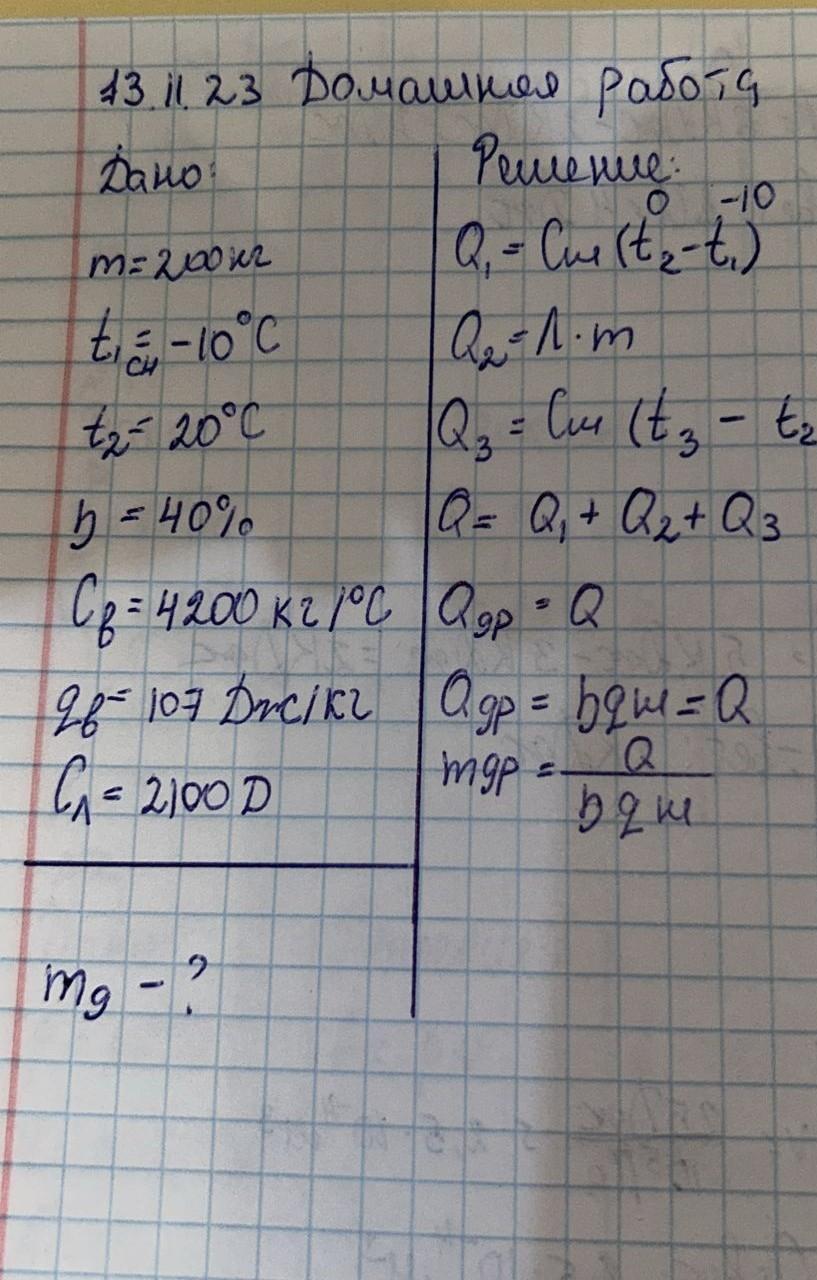 13.11.23 Домашняя работа
Дано:
m = 200 кг
t₁ сн = -10°C
t₂ = 20°C
η = 40%
Cв = 4200 кг/°C
qв = 107 Дж/кг
Cл = 2100 D
mg - ?
Решение:
0 -10
Q₁ = Cm (t₂ - t₁)
Q₂ = λ · m
Q₃ = Cm (t₃ - t₂
Q = Q₁ + Q₂ + Q₃
Qдр = Q
Qдр = ηqm = Q
mдр = Q / ηqm